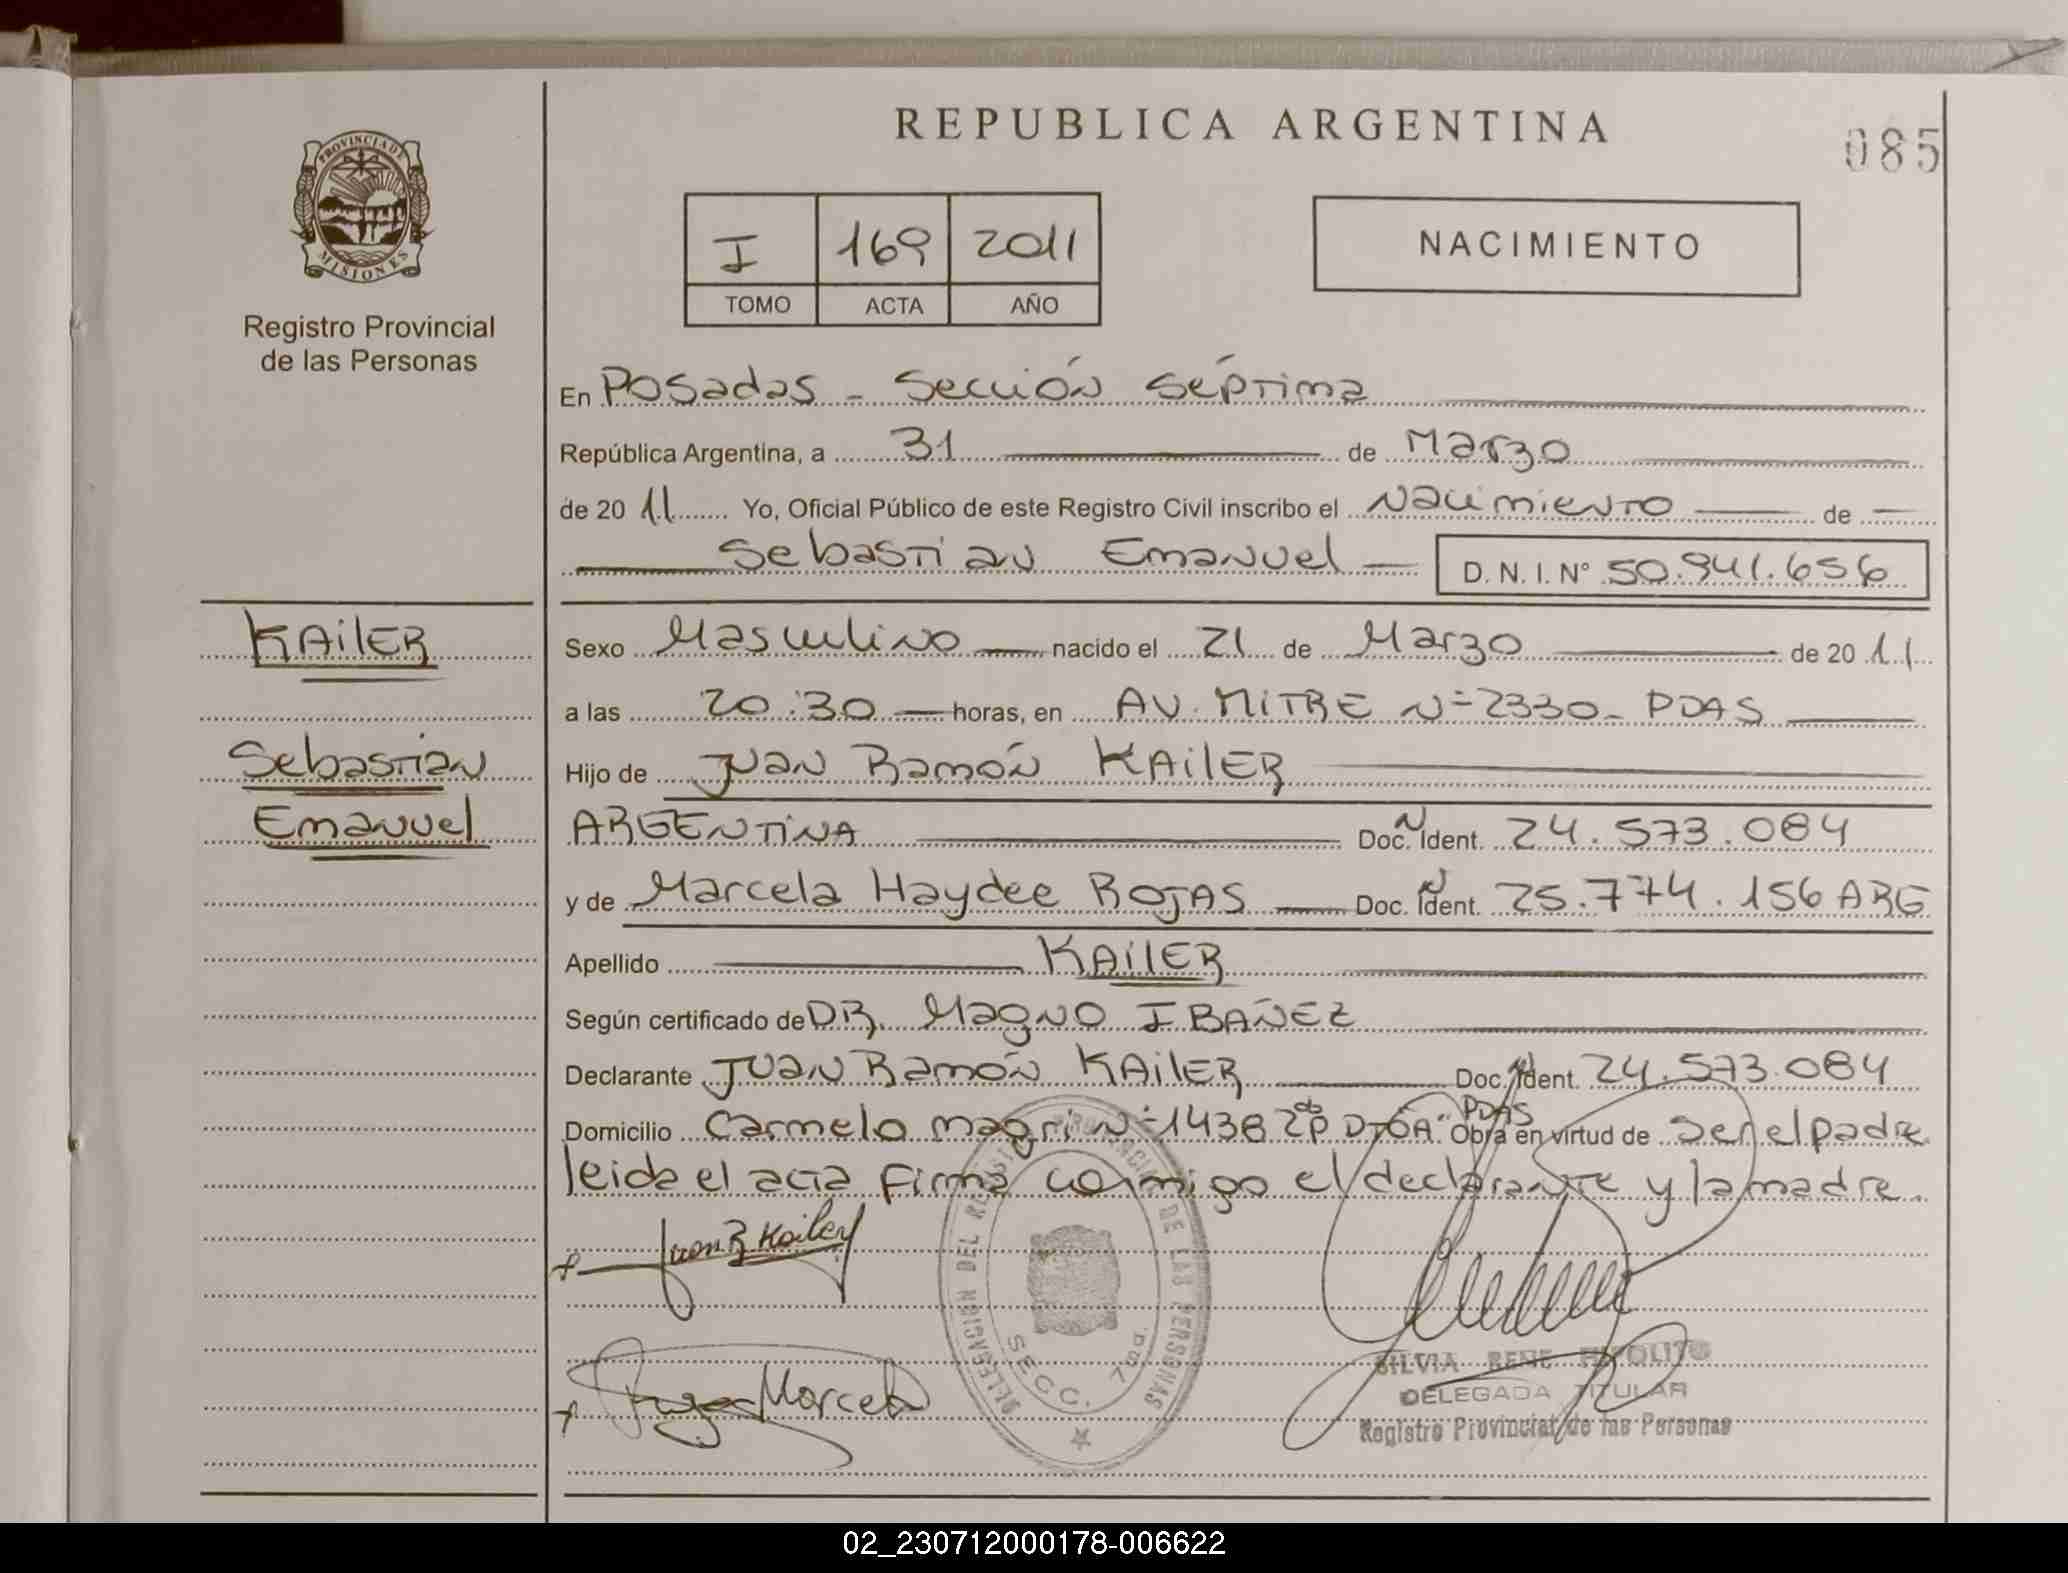 REPUBLICA ARGENTINA
085
PROVINCIA DE MISIONES
Registro Provincial
de las Personas
I 169 2011
TOMO ACTA AÑO
NACIMIENTO
En Posadas - Sección Séptima
República Argentina, a 31 de Marzo
de 20 11 Yo, Oficial Público de este Registro Civil inscribo el Nacimiento de
Sebastian Emanuel D. N. I. N° 50.941.656
KAilER
Sebastian
Emanuel
Sexo Masculino nacido el 21 de Marzo de 20 11
a las 20:30 horas, en AV. MITRE N° 2330 - PDAS
Hijo de Juan Ramón KAilER
ARGENTINA Doc. Ident. 24.573.084
y de Marcela Haydee ROJAS Doc. Ident. 25.774.156 ARG
Apellido KAilER
Según certificado de DR. Magno IBAÑEZ
Declarante Juan Ramón KAilER Doc. Ident. 24.573.084
Domicilio Carmelo Magri N° 1438 2do P DTO "A" PDAS Obra en virtud de ser el padre
leida el acta firma conmigo el declarante y la madre.
Juan R Kailer
Marcela
DELEGACION DEL REGISTRO PROVINCIAL DE LAS PERSONAS
SECC. 7ma.
SILVIA RENE HIPOLITO
DELEGADA TITULAR
Registro Provincial de las Personas
02_230712000178-006622